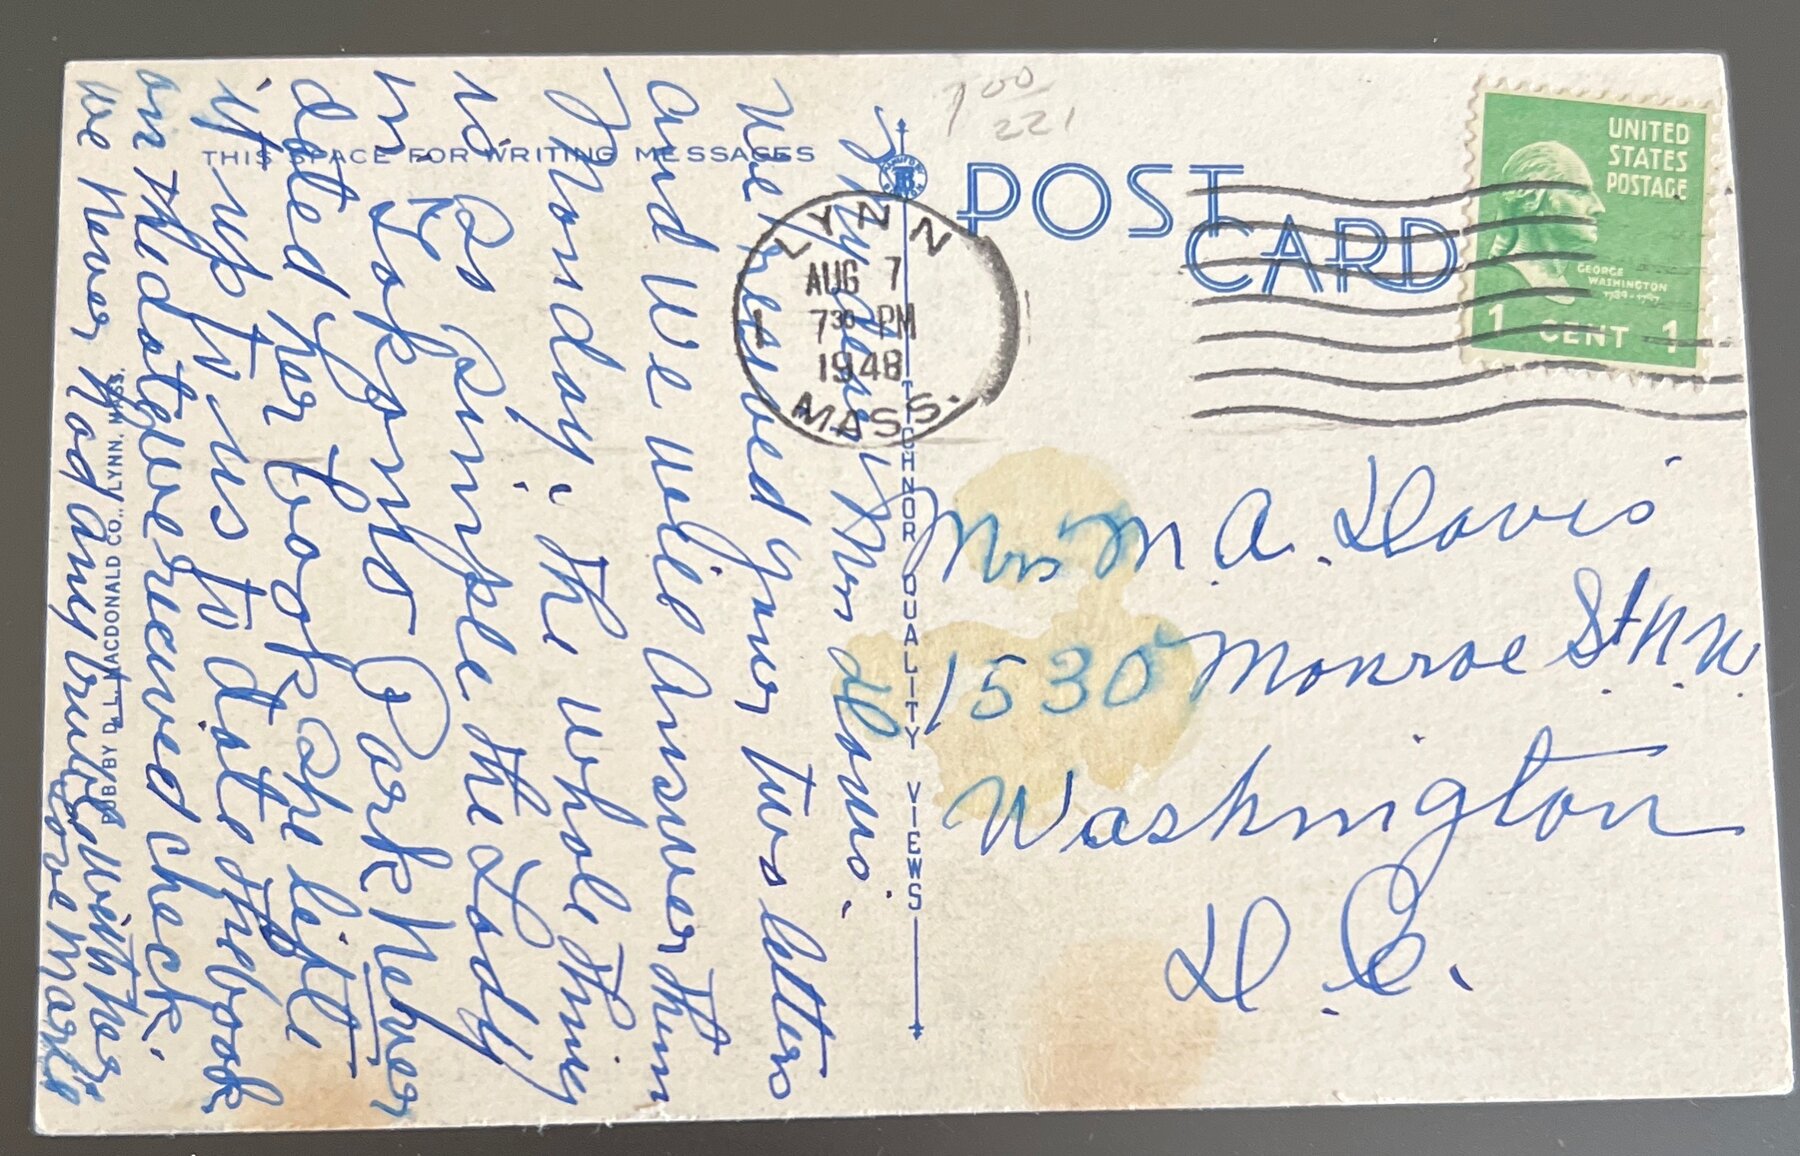 1 00
221
THIS SPACE FOR WRITING MESSAGES
POST
CARD
UNITED
STATES
POSTAGE
GEORGE
WASHINGTON
1789-1797
1 CENT 1
LYNN
AUG 7
7 30 PM
1948
MASS.
TICHNOR QUALITY VIEWS
PUB. BY D. L. MACDONALD CO., LYNN, MASS.
My dear Mrs Davis.
We Received your two letters
and We will Answer them
Monday. The whole thing
is
so simple the Lady
in Jopkons Park Never
dated her book She left
it up to us to date the book
on the date we received check.
We never had any trouble with her
Love Marls
Mrs M. A. Davis
1530 Monroe St N. W.
Washington
D. C.